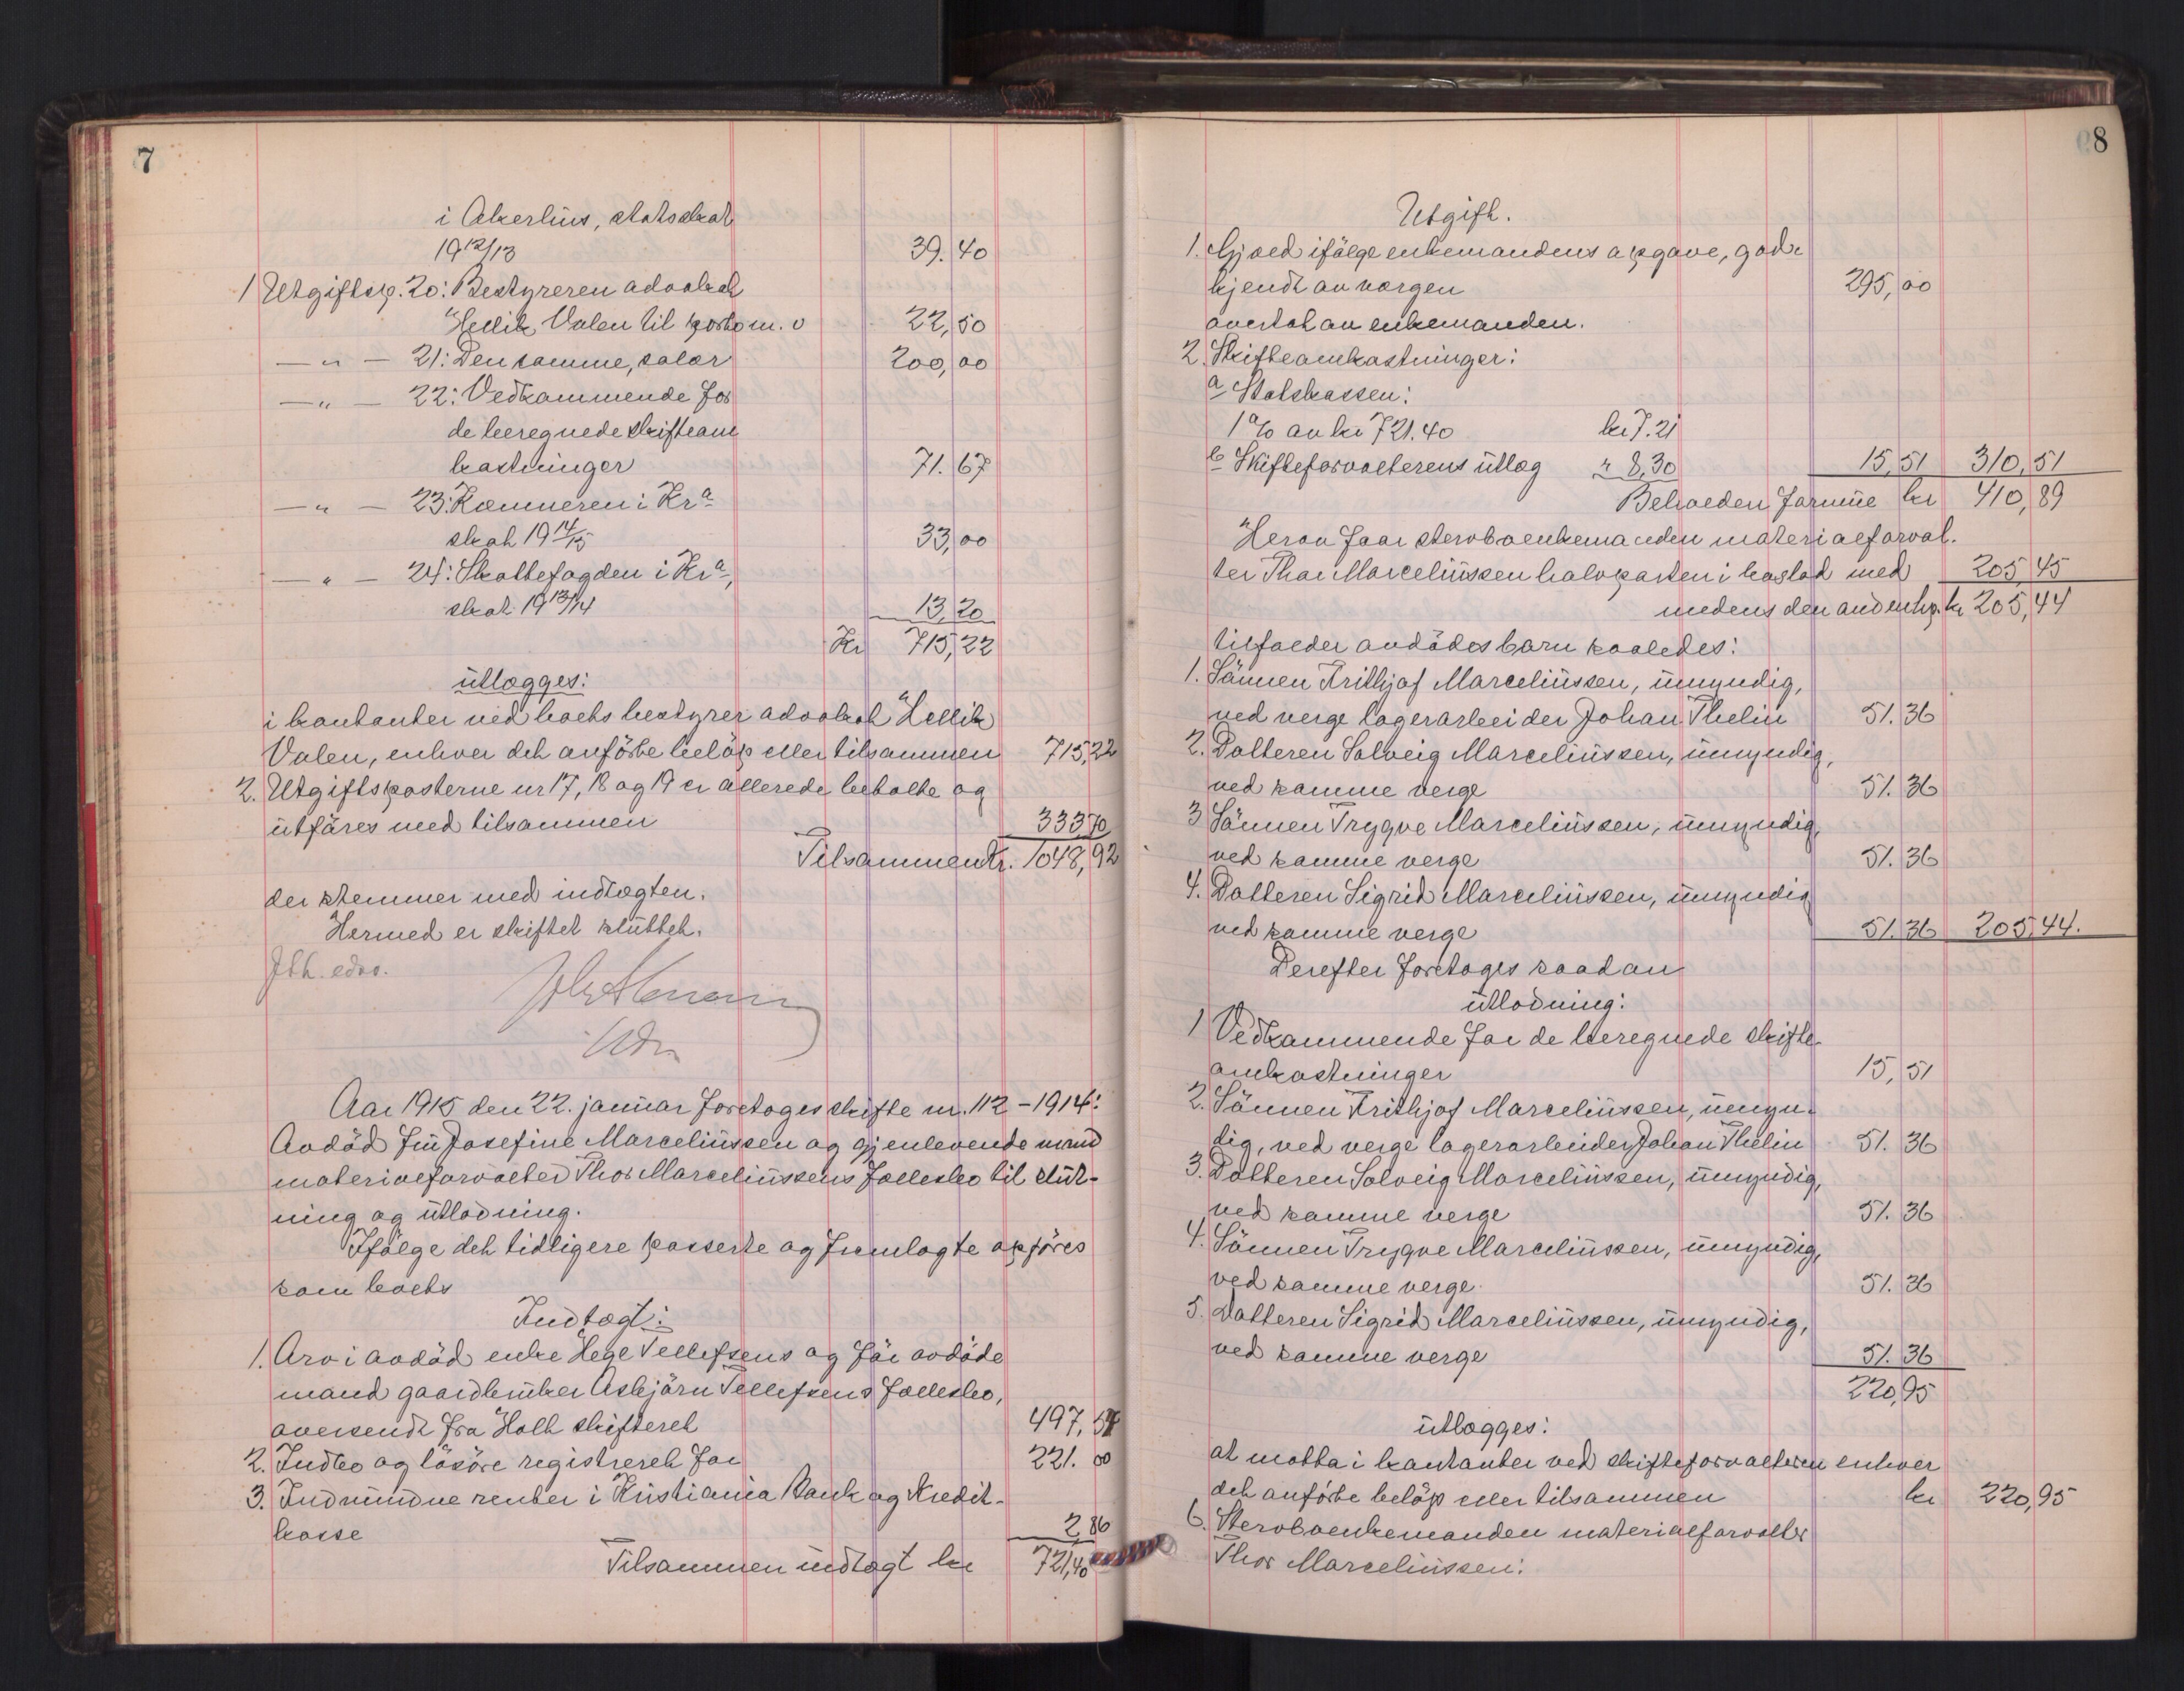 7
i Akerhus, statsskat
19 12/13 39.40
1 Utgiftsp. 20: Bestyreren advokat
Hellik Valen til porto m. v 22,50
—"— 21: Den samme, salær 200,00
—"— 22: Vedkommende for
de beregnede skifteom
kostninger 71.67
—"— 23: Kæmneren i Kra
skat 19 14/15 33,00
—"— 24: Skattefogden i Kra,
skat 19 13/14 13,20
Kr 715,22
utlægges:
i kontanter ved boets bestyrer advokat Hellik
Valen, enhver det anførte beløp eller tilsammen 715,22
2. Utgiftsposterne nr 17, 18 og 19 er allerede betalte og
utføres med tilsammen 333 70
Tilsammen Kr. 1048,92
der stemmer med indtægten.
Hermed er skiftet sluttet.
Aar 1915 den 22. januar foretoges skifte nr. 112 - 1914:
Avdød fru Josefine Marceliussen og gjenlevende mand
materialforvalter Thor Marceliussens fællesbo til slut-
ning og utlodning.
Ifølge det tidligere passerte og fremlagte opføres
som boets
Indtægt:
1. Arv i avdød enke Hege Tellefsens og før avdøde
mand gaardbruker Asbjørn Tellefsens fællesbo,
oversendt fra Holt skifteret 497,54
2. Indbo og løsøre registreret for 221.00
3. Indvundne renter i Kristiania Bank og Kredit-
kasse 2 86
Tilsammen indtægt kr 721,40
8
Utgift.
1. Gjæld ifølge enkemandens opgave, god-
kjendt av værgen 295,00
overtat av enkemanden.
2. Skifteomkostninger:
a Statskassen:
1 % av kr 721.40 kr 7.21
b Skifteforvalterens utlæg " 8,30 15,51 310,51
Beholden formue kr 410,89
Herav faar stervboenkemanden materialforval-
ter Thor Marceliussen halvparten i boslod med 205,45
medens den anden hp. kr 205,44
tilfalder avdødes barn saaledes:
1. Sønnen Frithjof Marceliussen, umyndig,
ved verge lagerarbeider Johan Thelin 51.36
2. Datteren Solveig Marceliussen, umyndig,
ved samme verge 51.36
3 Sønnen Trygve Marceliussen, umyndig,
ved samme verge 51.36
4. Datteren Sigrid Marceliussen, umyndig
ved samme verge 51.36 205,44.
Derefter foretoges saadan
utlodning:
1 Vedkommende for de beregnede skifte-
omkostninger 15,51
2. Sønnen Frithjof Marceliussen, umyn-
dig, ved verge lagerarbeider Johan Thelin 51.36
3. Datteren Solveig Marceliussen, umyndig,
ved samme verge 51.36
4. Sønnen Trygve Marceliussen, umyndig,
ved samme verge 51.36
5. Datteren Sigrid Marceliussen, umyndig,
ved samme verge 51.36
220,95
utlægges:
at motta i kontanter ved skifteforvalteren enhver
det anførte beløp eller tilsammen kr 220,95
6. Stervboenkemanden materialforvalter
Thor Marceliussen: